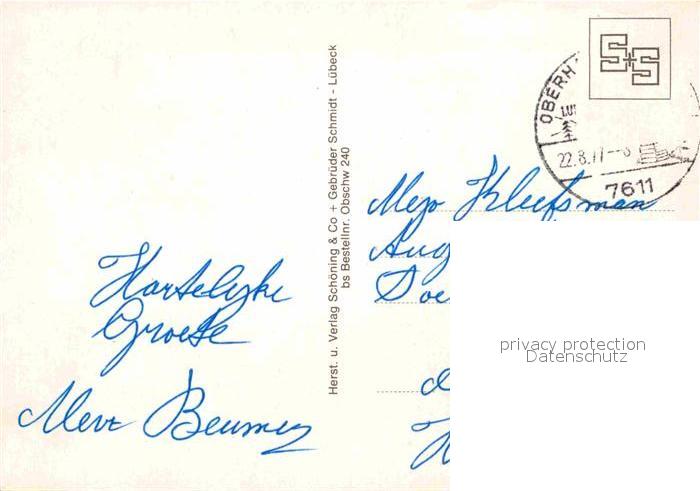 Hartelyke
Groete
Mevr Beumer
Herst. u. Verlag Schöning & Co + Gebrüder Schmidt - Lübeck
bs Bestellnr. Obschw 240
S+S
OBERH
LU
22.8.77--8
7611
Mej Kleefsman
Aug
Doe
d
H
privacy protection
Datenschutz